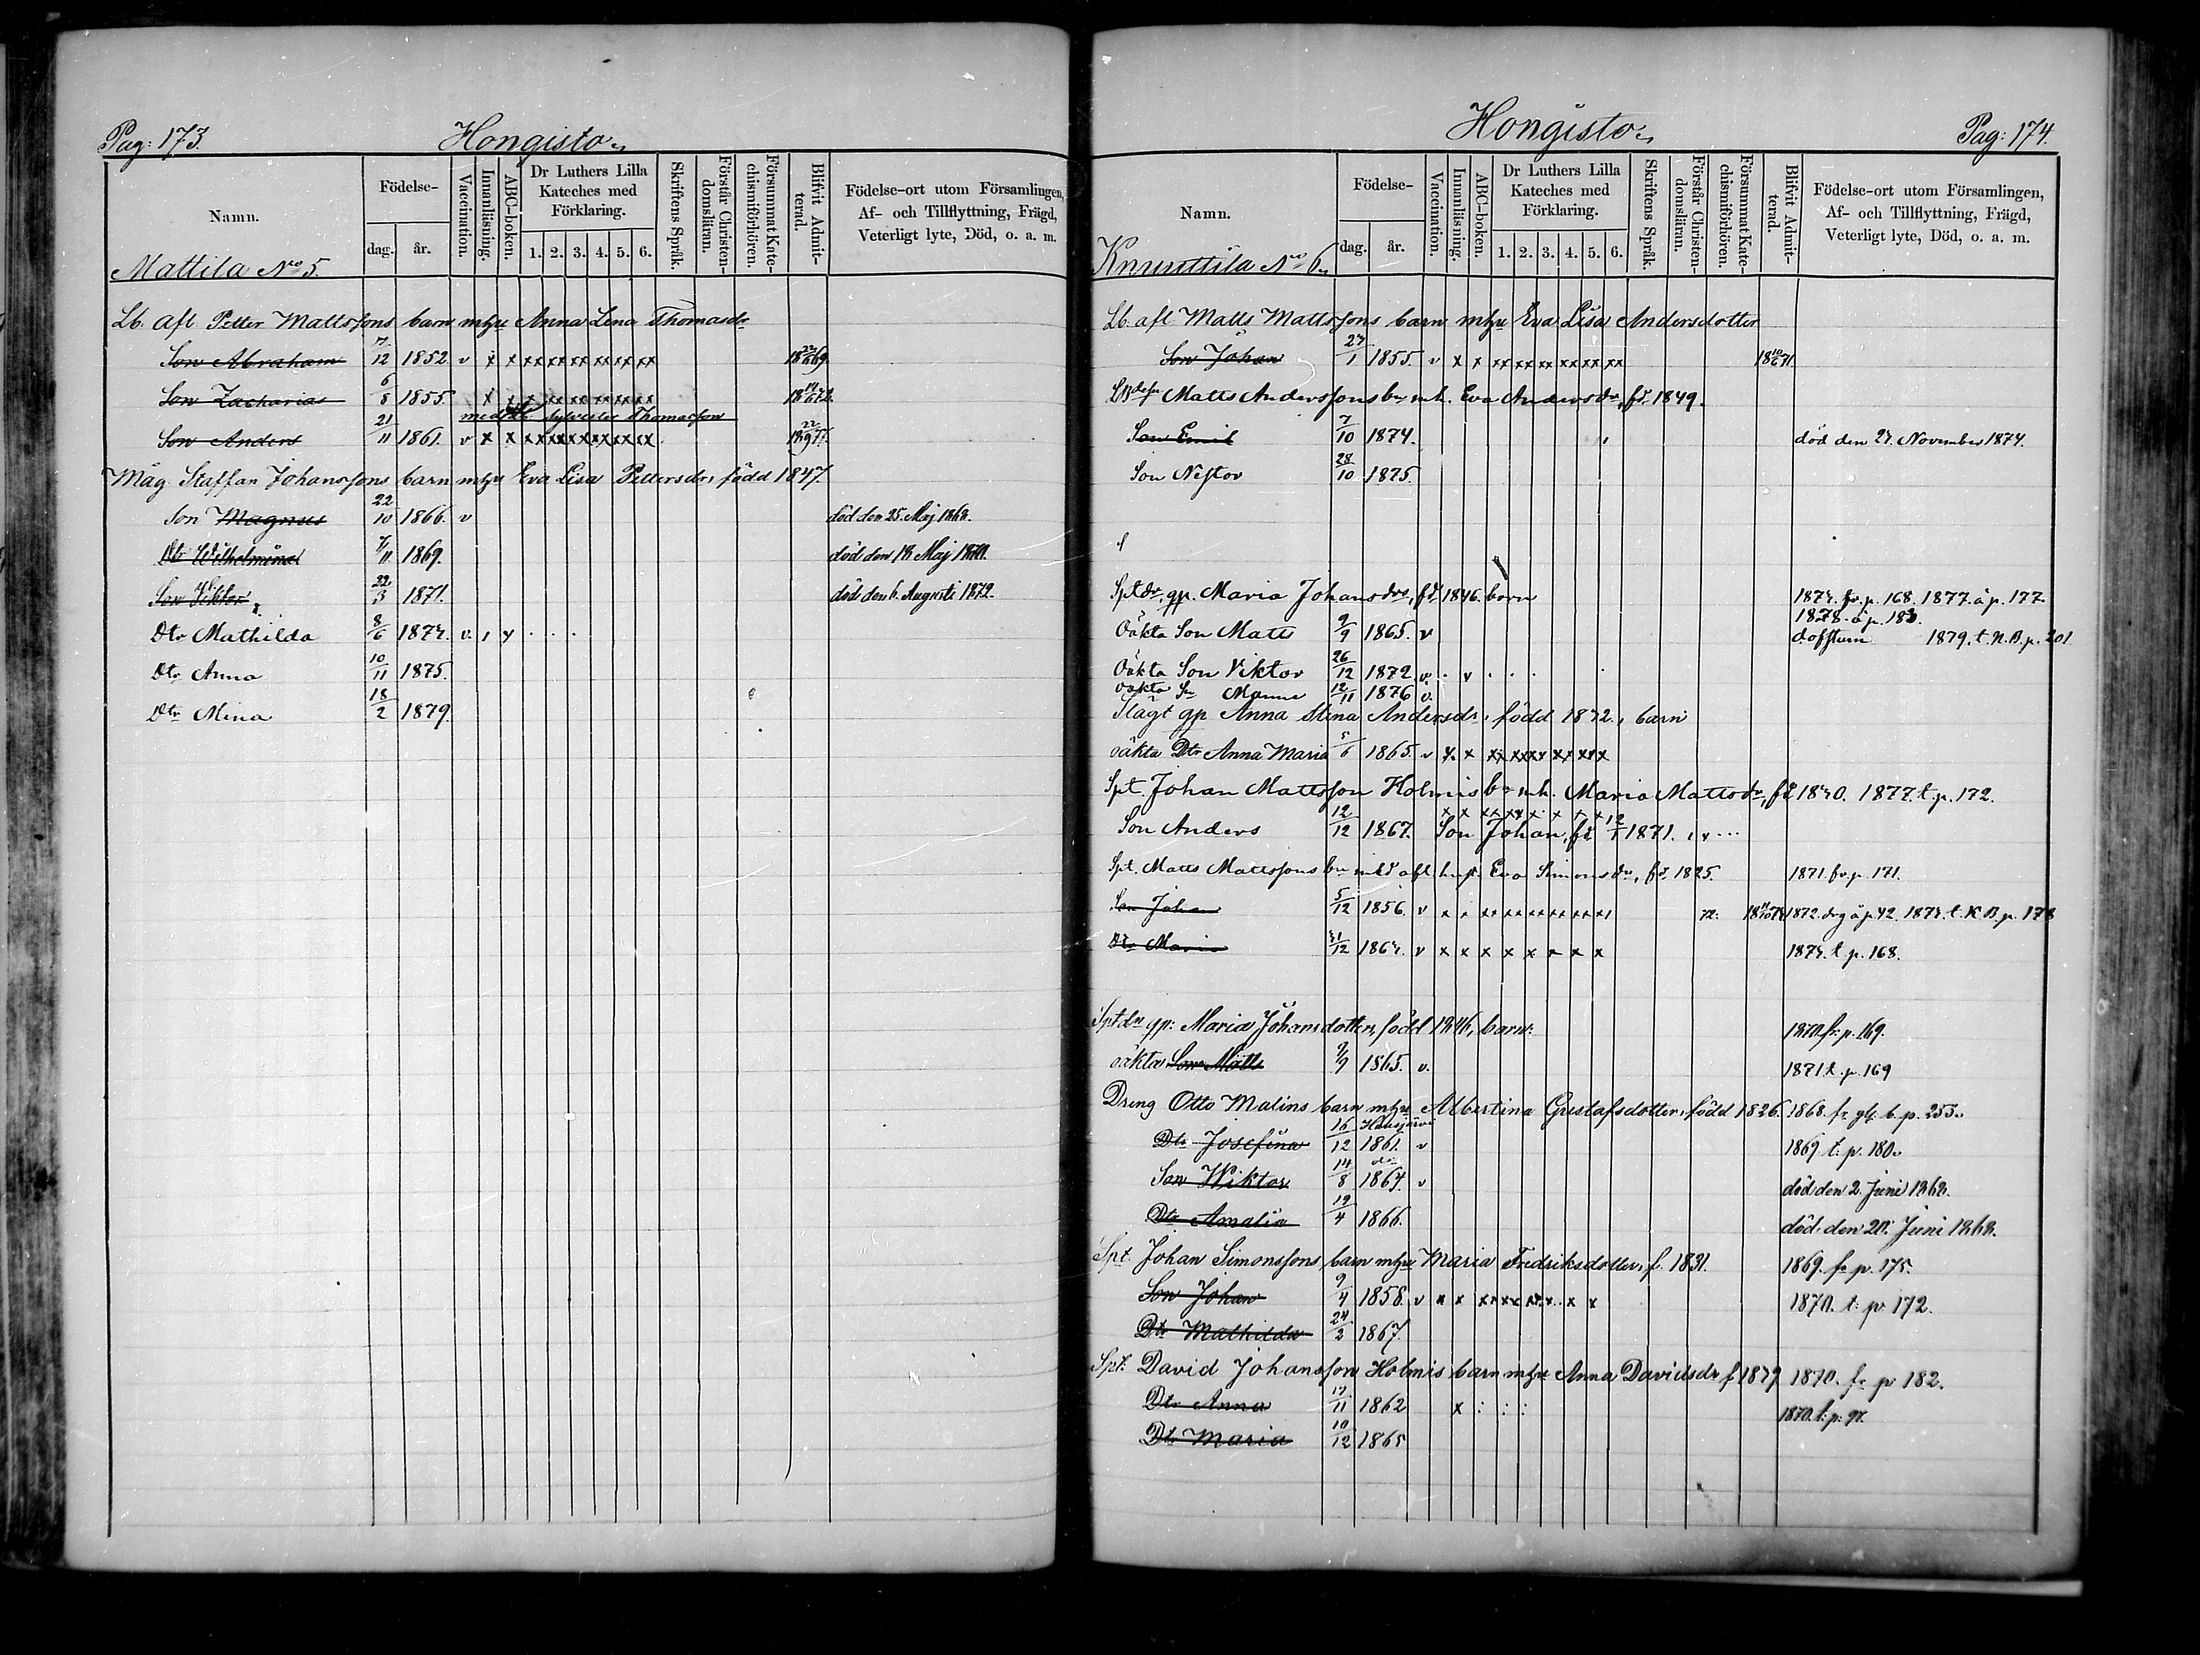 Pag: 173.
Hongisto
Namn.
Födelse-
dag.
år.
Vaccination.
Innanläsning.
ABC-boken.
Dr Luthers Lilla
Kateches med
Förklaring.
1. 2. 3. 4. 5. 6.
Skriftens Språk.
Förstår Christen-
domsläran.
Försummat Kate-
chismiförhören.
Blifvit Admit-
terad.
Födelse-ort utom Församlingen,
Af- och Tillflyttning, Frägd,
Veterligt lyte, Död, o. a. m.
Mattila No 5.
Lb. afl. Petter Mattssons barn mhu Anna Lena Thomasdr
Son Abraham 7/12 1852. v x x xx xx xx xx xx xx 18 22/6 69.
Son Zacharias 6/8 1855. x x x xx xx xx xx xx
med Sylvester Thomasson
Son Anders 21/11 1861. v x x xx xx xx xx xx xx
Måg Staffan Johanssons barn mhu Eva Lisa Pettersdr, född 1847.
Son Magnus 22/10 1866. v död den 25. Maj 1868.
Dtr Wilhelmina 7/11 1869. död den 18 Maj 1870.
Son Viktor 22/3 1871. död den 6. Augusti 1872.
Dtr Mathilda 8/6 1874. v.
Dtr Anna 10/11 1875.
Dtr Mina 18/2 1879.
Hongisto
Pag: 174.
Namn.
Födelse-
dag.
år.
Vaccination.
Innanläsning.
ABC-boken.
Dr Luthers Lilla
Kateches med
Förklaring.
1. 2. 3. 4. 5. 6.
Skriftens Språk.
Förstår Christen-
domsläran.
Försummat Kate-
chismiförhören.
Blifvit Admit-
terad.
Födelse-ort utom Församlingen,
Af- och Tillflyttning, Frägd,
Veterligt lyte, Död, o. a. m.
Knuuttila No 6.
Lb. afl Matts Mattssons barn mhu Eva Lisa Andersdotter
Son Johan 27/1 1855. v x x xx xx xx xx xx xx 18 10/6 71.
Matts Anderssons bn mh. Eva Andersdr, fd. 1849.
Son Emil 7/10 1874. död den 27. November 1874.
Son Nestor 28/10 1875.
Sptdr, qp. Maria Johansdr, fd. 1846. barn 1874. fr. p. 168. 1877. å p. 177
1878. å p. 183.
Oäkta Son Matts 9/9 1865. v 1879. t. N. B. p. 201
Oäkta Son Viktor 26/12 1872. v.
oäkta Sn Manne 12/11 1876 v.
Slägt qp Anna Stina Andersdr, född 1842, barn
oäkta Dtr Anna Maria 5/6 1865. v x. x xx xx xx xx xx
Spt. Johan Mattsson Holmis bn mh. Maria Mattsdr, fd 1840. 1877. t. p. 172.
Son Anders 12/12 1867. Son Johan, fd 12/1 1871.
Spt. Matts Mattssons bn med afl. h. Eva Simonsdr, fd. 1825. 1871. fr. p. 171.
Son Johan 5/12 1856. v 72. 1872. drg å p. 42. 1874. t. K. B. p. 178
Dtr Maria 1864. v x x x x x x x x 1874. t p. 168.
Sptdr qp: Maria Johansdotter, född 1846, barn: 1870. fr: p. 169.
oäkta Son Matts 9/9 1865. v. 1871 t. p. 169
Dreng Otto Malins barn mhu Albertina Gustafsdotter, född 1826. 1868. fr gb. b. p. 253.
Hausjärvi
Dtr Josefina 16/12 1861. v 1869 t: p. 180.
do
Son Wiktor 14/8 1864. v död den 2. Juni 1868.
Dtr Amalia 19/4 1866. död den 20. Juni 1868.
Spt. Johan Simonssons barn mhu Maria Fredriksdotter, f. 1831. 1869. fr p. 175.
Son Johan 9/4 1858. v x x xx xx xx x x x 1870. t: p. 172.
Dtr Mathilda 24/2 1867.
Spt. David Johansson Holmis barn mhu Anna Davidsdr f 1839 1870. fr p 182.
Dtr Anna 17/11 1862 x : : : 1870. t: p: 97.
Dtr Maria 10/12 1865